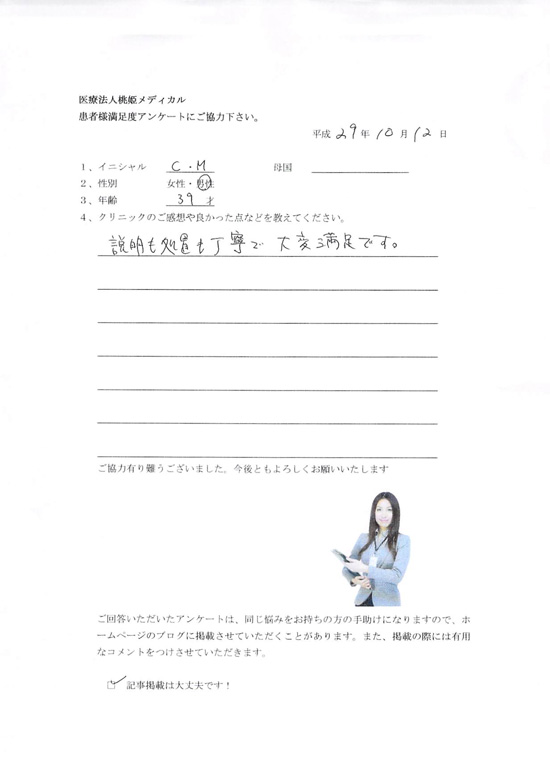 医療法人桃姫メディカル
患者様満足度アンケートにご協力下さい。
平成 29 年 10 月 12 日
1、イニシャル C・M 母国
2、性別 女性・男性
3、年齢 39 才
4、クリニックのご感想や良かった点などを教えてください。
説明も処置も丁寧で 大変満足です。
ご協力有り難うございました。今後ともよろしくお願いいたします
ご回答いただいたアンケートは、同じ悩みをお持ちの方の手助けになりますので、ホ
ームページのブログに掲載させていただくことがあります。また、掲載の際には有用
なコメントをつけさせていただきます。
記事掲載は大丈夫です！